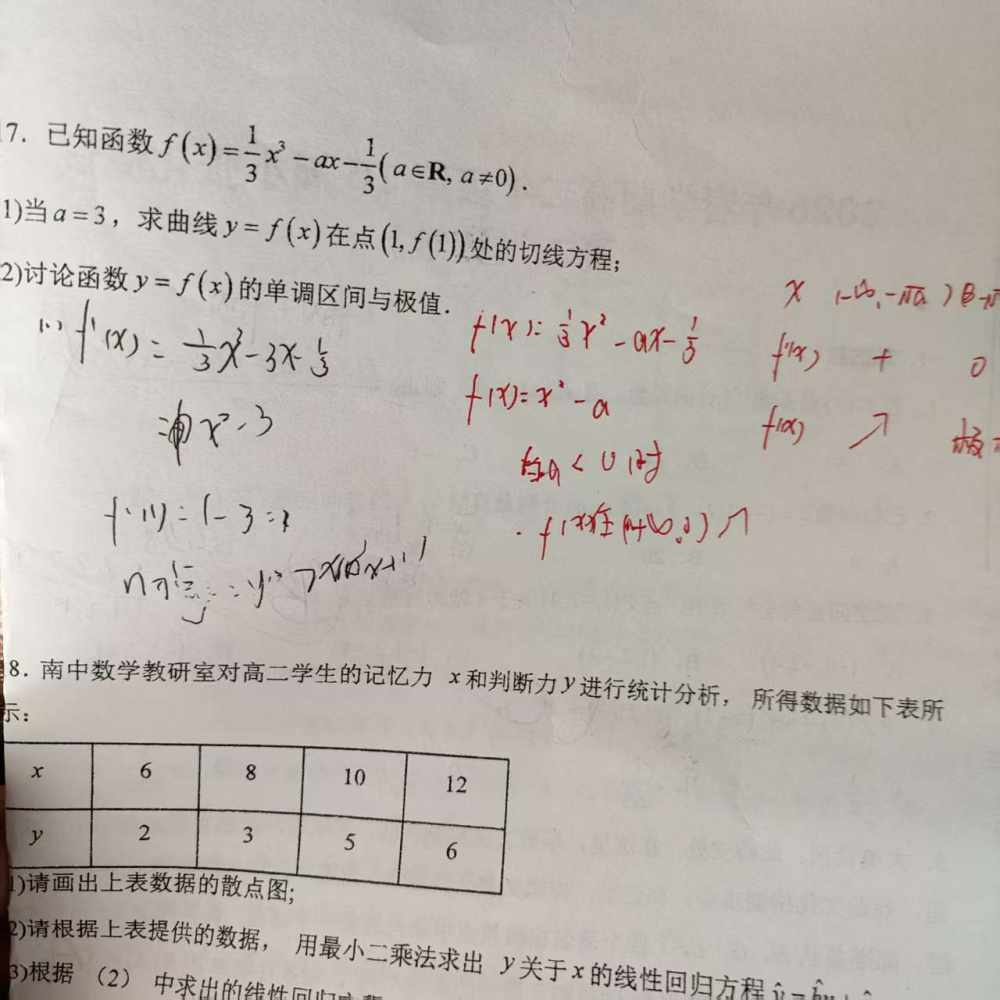 7. 已知函数 f(x)=1/3x³-ax-1/3(a∈R, a≠0).
1)当a=3, 求曲线y=f(x)在点(1,f(1))处的切线方程;
2)讨论函数y=f(x)的单调区间与极值.
f'(x)=1/3x³-3x-1/3
x²-3
f(x)=1/3x³-ax-1/3
f'(x)=x²-a
当a<0时
x (-∞,-√a)
f'(x) + 0
f(x) ↗ 极
8. 南中数学教研室对高二学生的记忆力 x和判断力y进行统计分析, 所得数据如下表所
示:
x 6 8 10 12
y 2 3 5 6
1)请画出上表数据的散点图;
2)请根据上表提供的数据, 用最小二乘法求出 y关于x的线性回归方程
3)根据 (2) 中求出的线性回归方程